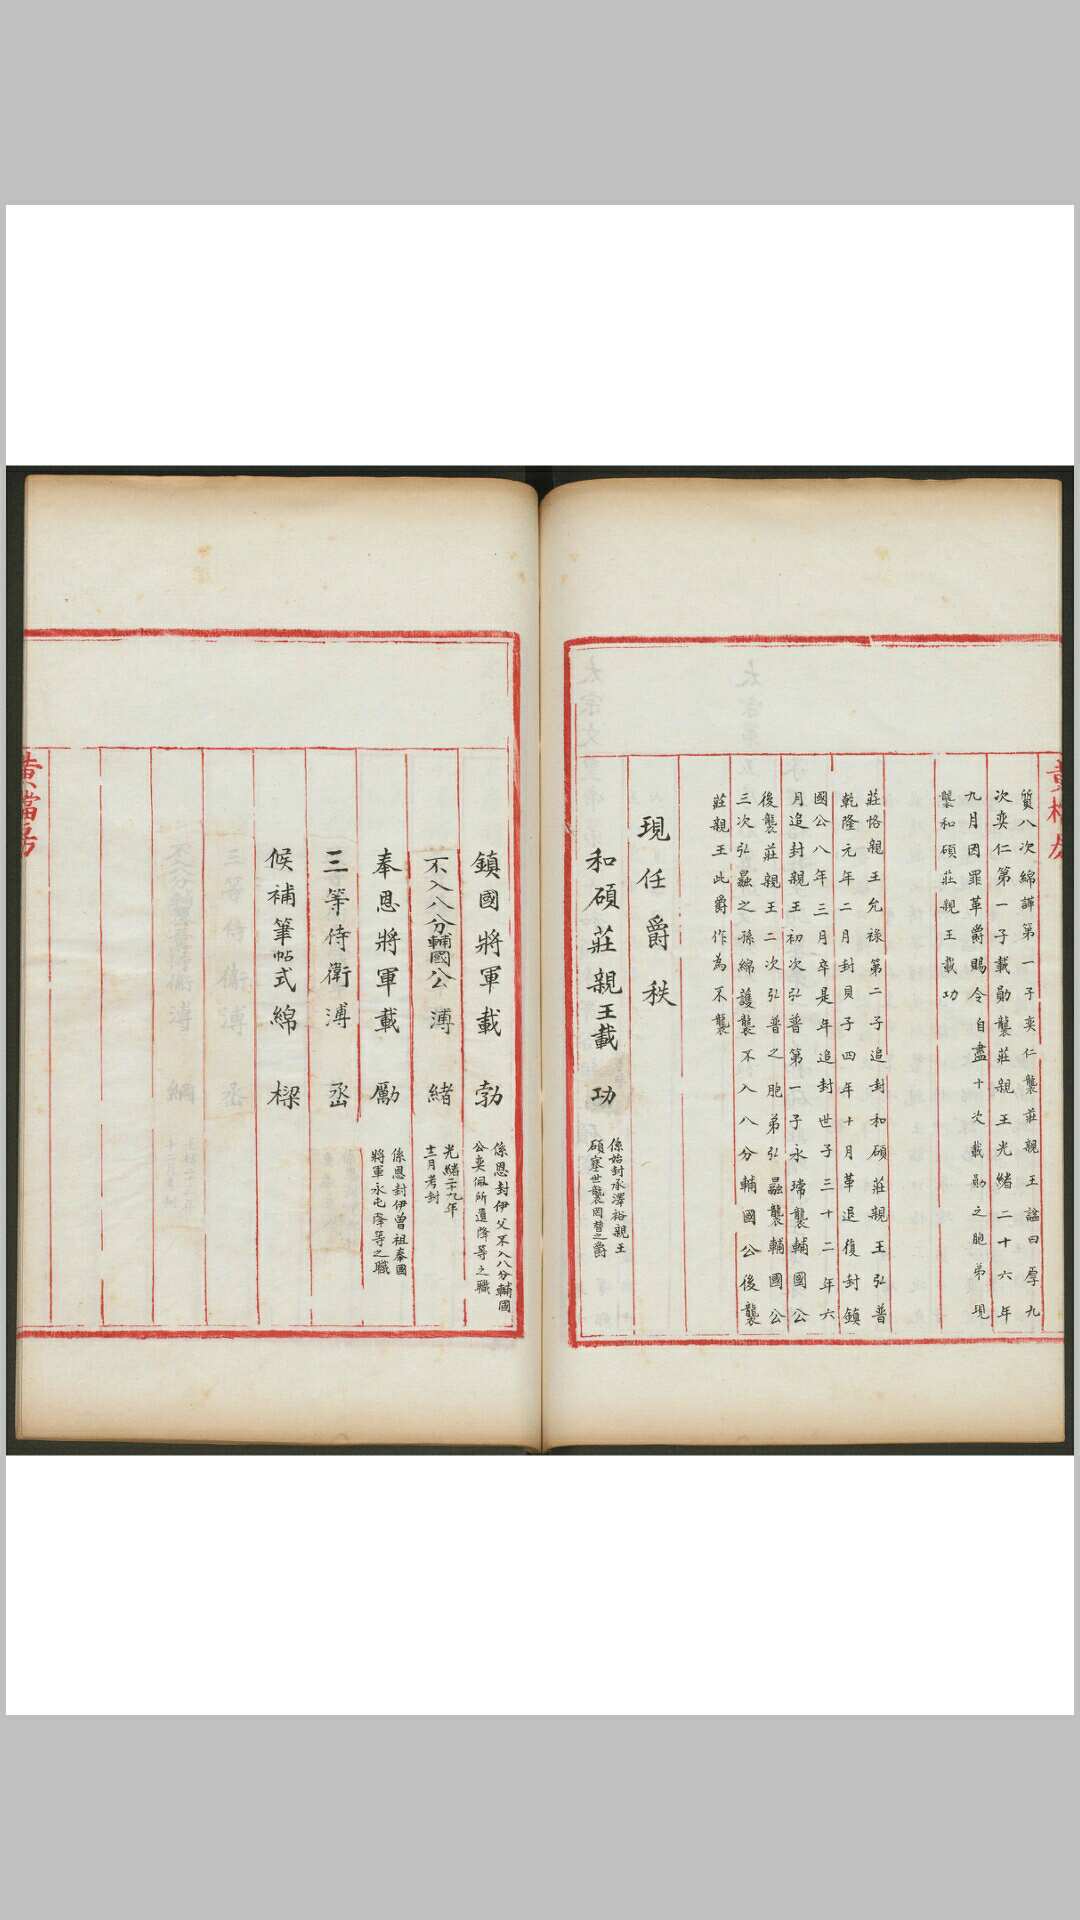 質八次綿譁第一子奕仁襲莊親王諡曰厚九
次奕仁第一子載勛襲莊親王光緒二十六年
九月因罪革爵賜令自盡十次載勛之胞弟現
襲和碩莊親王載功
莊恪親王允祿第二子追封和碩莊親王弘普
乾隆元年二月封貝子四年十月革退復封鎮
國公八年三月卒是年追封世子三十二年六
月追封親王初次弘普第一子永瑺襲輔國公
後襲莊親王二次弘普之胞弟弘融襲輔國公
三次弘融之孫綿護襲不入八分輔國公後襲
莊親王此爵作為不襲
現任爵秩
和碩莊親王載功
係始封承澤裕親王
碩塞世襲罔替之爵
鎮國將軍載勃
係恩封伊父不入八分輔國
公奕佩所遺降等之職
不入八分輔國公溥緒
光緒二十九年
十二月考封
奉恩將軍載勵
係恩封伊曾祖奉國
將軍永屯降等之職
三等侍衛溥丞
候補筆帖式綿樑
黃檔房